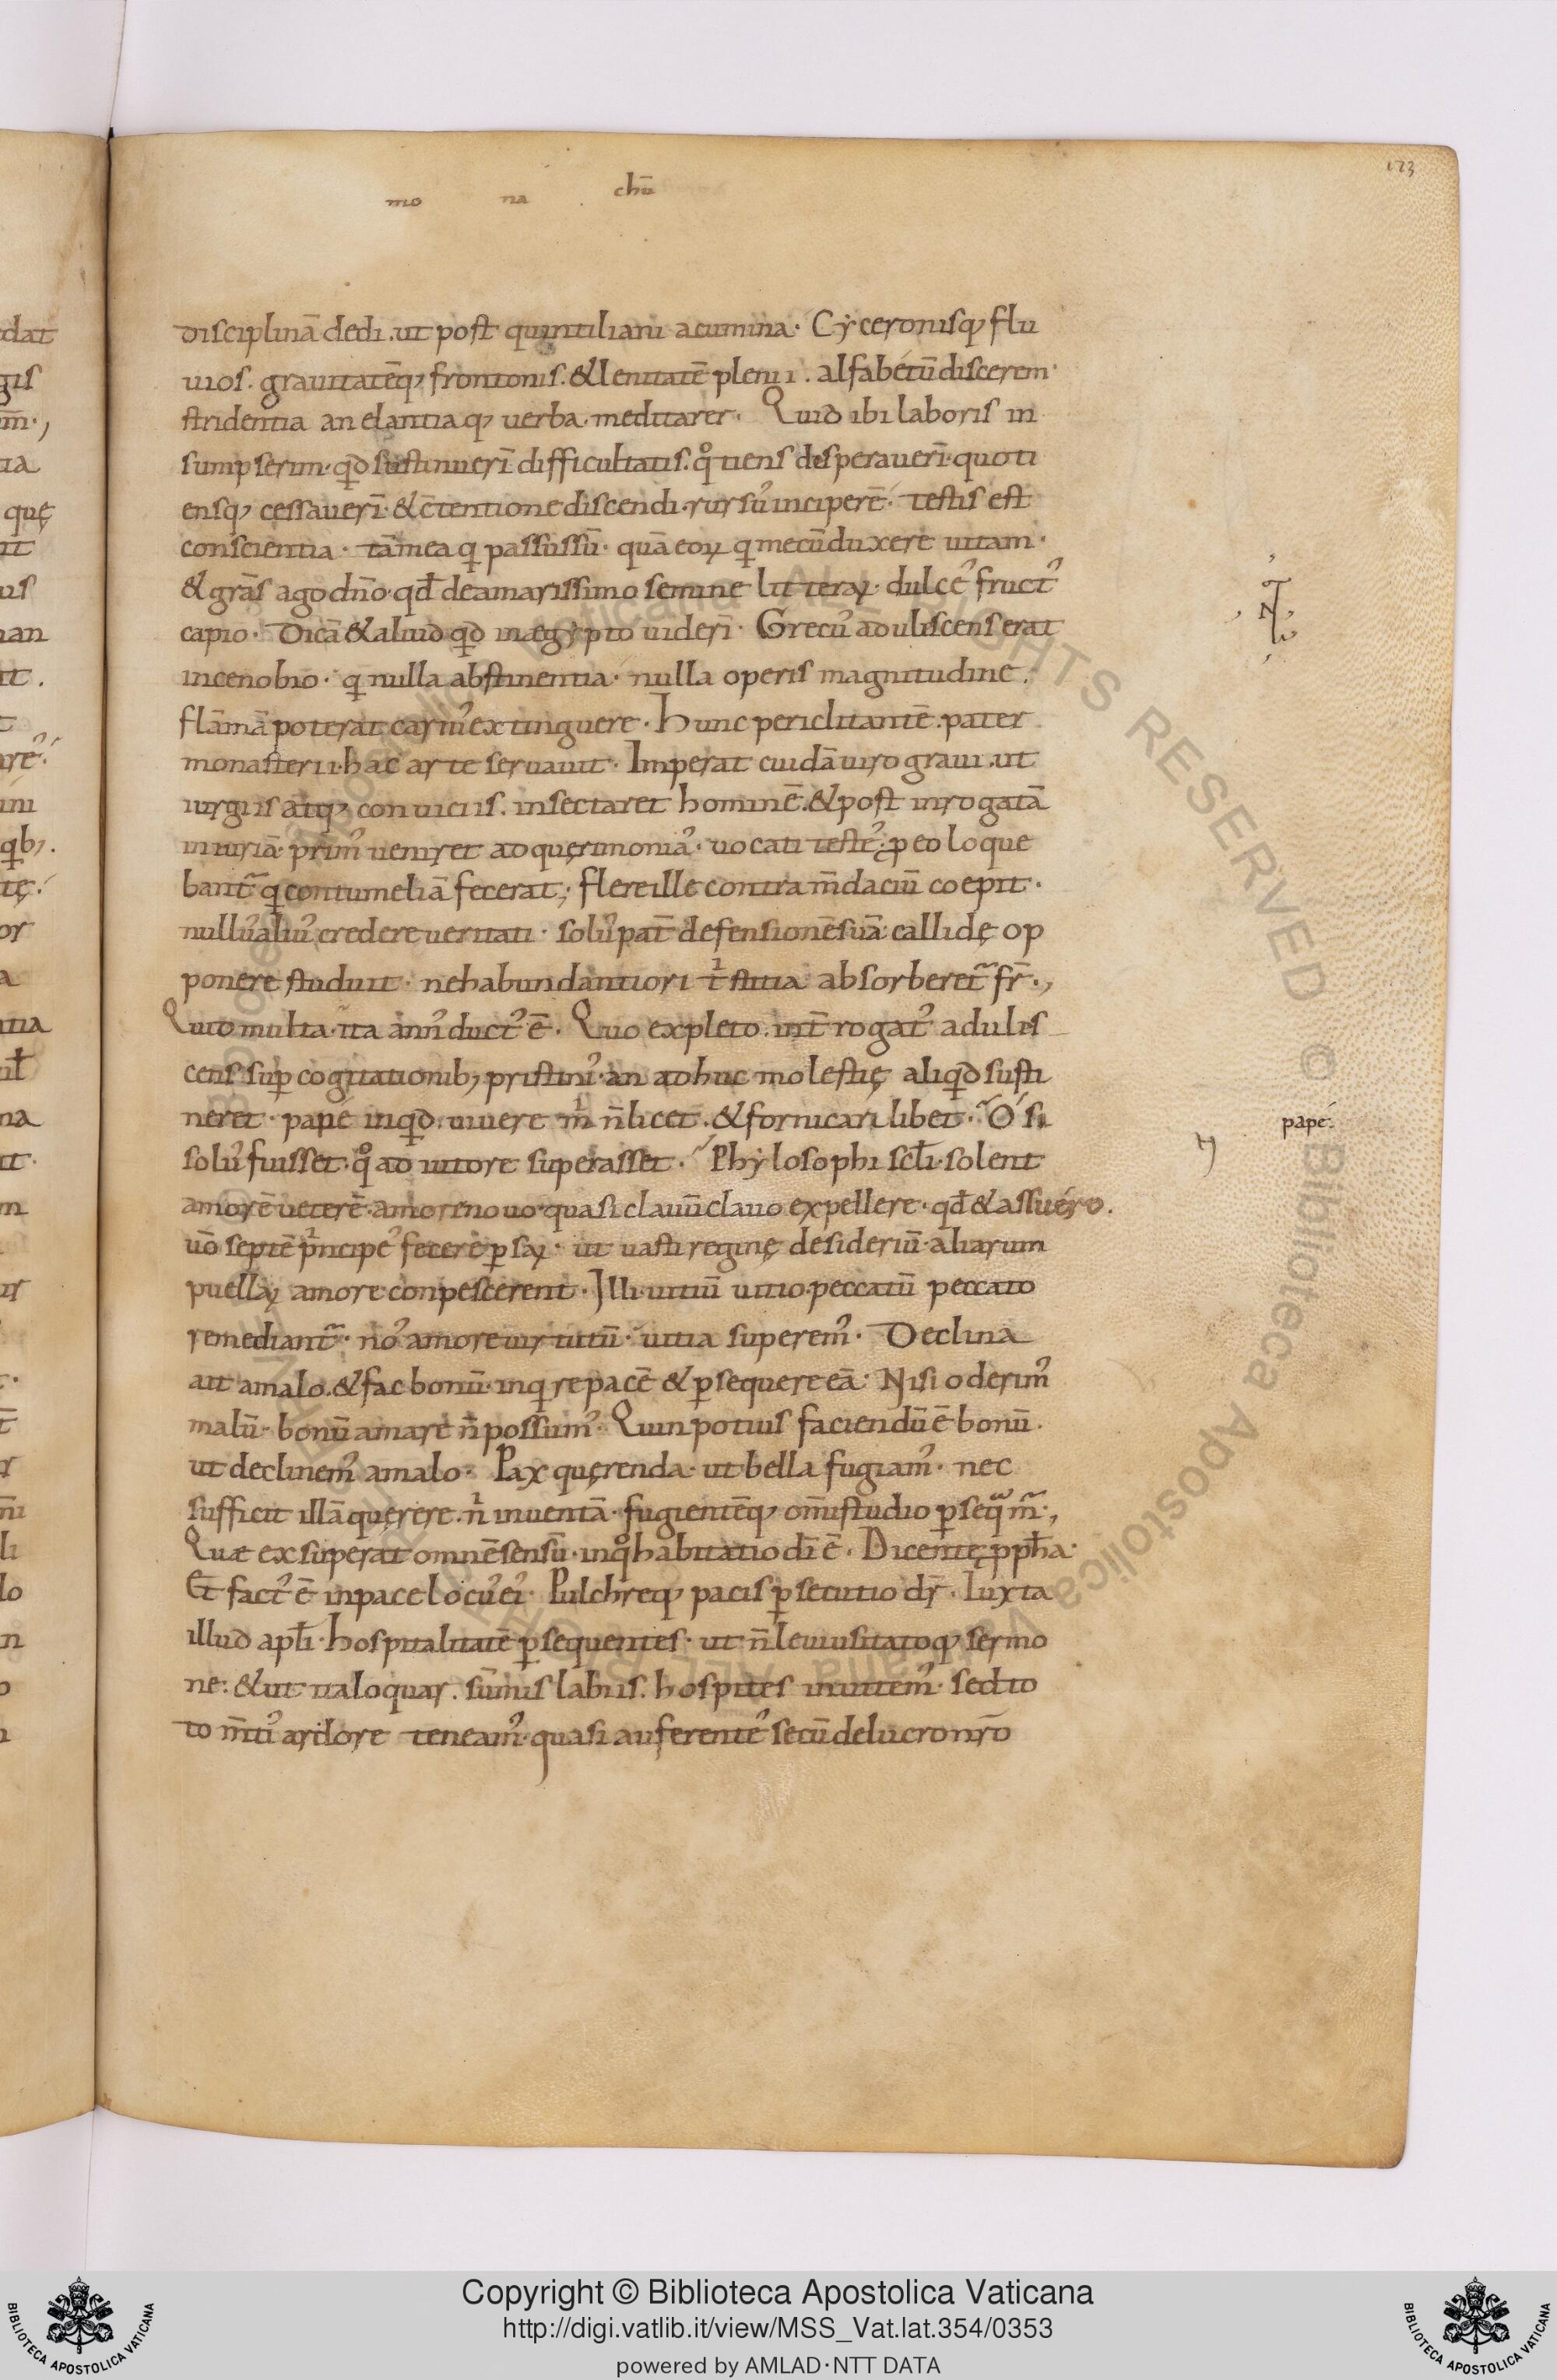 173
mo na chū
disciplinā dedi. ut post quintiliani acumina· Cẏceronisq; flu
uios. grauitatēq; frontonis. & lenitatē plenii. alfabétū discerem·
stridentia anelantiaq; uerba meditarer· Quid ibi laboris in
sumpserim· qđ sustinuerī difficultatis. qͦtiens desperauerī· quoti
ensq; cessauerī· & c̄tentione discendi rursū inciperē· testis est
conscientia· tā mea q passus sū· quā eoꝝ q mecū duxere uitam·
& grās ago dn̄o· qđ de amarissimo semine litteraꝝ· dulce᾽ fruct᾽
capio· Dicā & aliud qđ in ægẏpto uiderī· Grecū adulescens erat
in cenobio· q nulla abstinentia· nulla operis magnitudine.
flāmā poterat carniū extinguere· Hunc periclitantē. pater
monasterii· hac arte seruauit· Imperat cuidā uiro graui. ut
iurgiis atq; conuiciis. insectaret hominē. & post inrogatā
iniuriā· prim᾽ ueniret ad quęrimoniā· uocati teste᾽· ꝓ eo loque
bant᷑ q contumeliā fecerat; flere ille contra m̄daciū coepit·
nullū aliū credere ueritati· solū pat̄ defensionē suā callidę op
ponere studuit· ne habundantiori tͥstitia absorberet᷑ fr̄·,
Quid multa· ita ann᾽ duct᾽ ē· Quo expleto. int̄rogat᾽ adules
cens suꝑ cogitationib; pristinis· an adhuc molestię aliqđ susti
neret· papé inqđ. uiuere mͥ n̄ licet. & fornicari libet· Ó si
papé·
solū fuisset· qͦ adiutore superasset· Phẏlosophi scl̄i· solent
amorē ueterē· amore nouo· quasi clauū clauo expellere· qđ & assuéro.
uō septē pͥncipe᾽ fecerē ꝑsaꝝ· ut uasti reginę desideriū· aliarum
puellaꝝ amore conpescerent· Illi uitiū uitio· peccatū peccato
remediant᷑· no᾽ amore uirtutū· uitia superem᾽· Declina
ait a malo. & fac bonū· inqire pacē & ꝑsequere eā· Nisi oderim᾽
malū· bonū amare n̄ possum᾽· Quin potius faciendū ē bonū·
ut declinem᾽ a malo· Pax quęrenda· ut bella fugiam᾽· nec
sufficit illā quęrere· nͥ inuentā· fugientēq; om̄i studio ꝑseqͣm᷑·,
Quæ exsuperat omnē sensū· in qͦ habitatio dī ē· Dicente ꝓph̄a·
Et fact᾽ ē in pace locu᾽ ei᾽· Pulchreq; pacis ꝑsecutio dr̄· Iuxta
illud apl̄i· hospitalitatē ꝑsequentes· ut n̄ leui usitatoq; sermo
ne: & ut ita loquar. sūmis labiis. hospites inuitem᾽· sed to
to m̄ti᾽ ardore teneam᾽· quasi auferente᾽ secū de lucro nr̄o
Copyright © Biblioteca Apostolica Vaticana
http://digi.vatlib.it/view/MSS_Vat.lat.354/0353
powered by AMLAD·NTT DATA
BIBLIOTECA APOSTOLICA VATICANA
BIBLIOTECA APOSTOLICA VATICANA